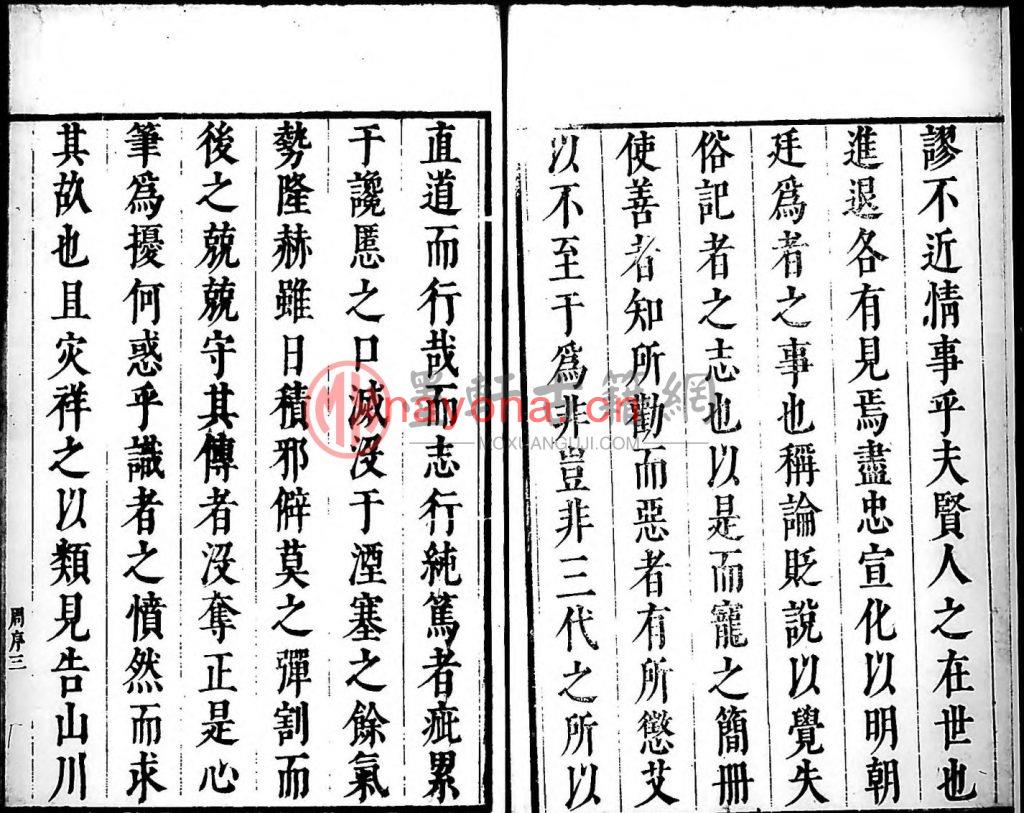 謬不近情事乎夫賢人之在世也
進退各有見焉盡忠宣化以明朝
廷爲者之事也稱論貶說以覺失
俗記者之志也以是而寵之簡冊
使善者知所勸而惡者有所懲艾
以不至于爲非豈非三代之所以
直道而行哉而志行純篤者疵累
于讒慝之口滅沒于湮塞之餘氣
勢隆赫雖日積邪僻莫之彈割而
後之兢兢守其傳者沒奪正是心
筆爲擾何惑乎識者之憤然而求
其故也且灾祥之以類見告山川
周序三
墨軒古籍網
nayona.cn